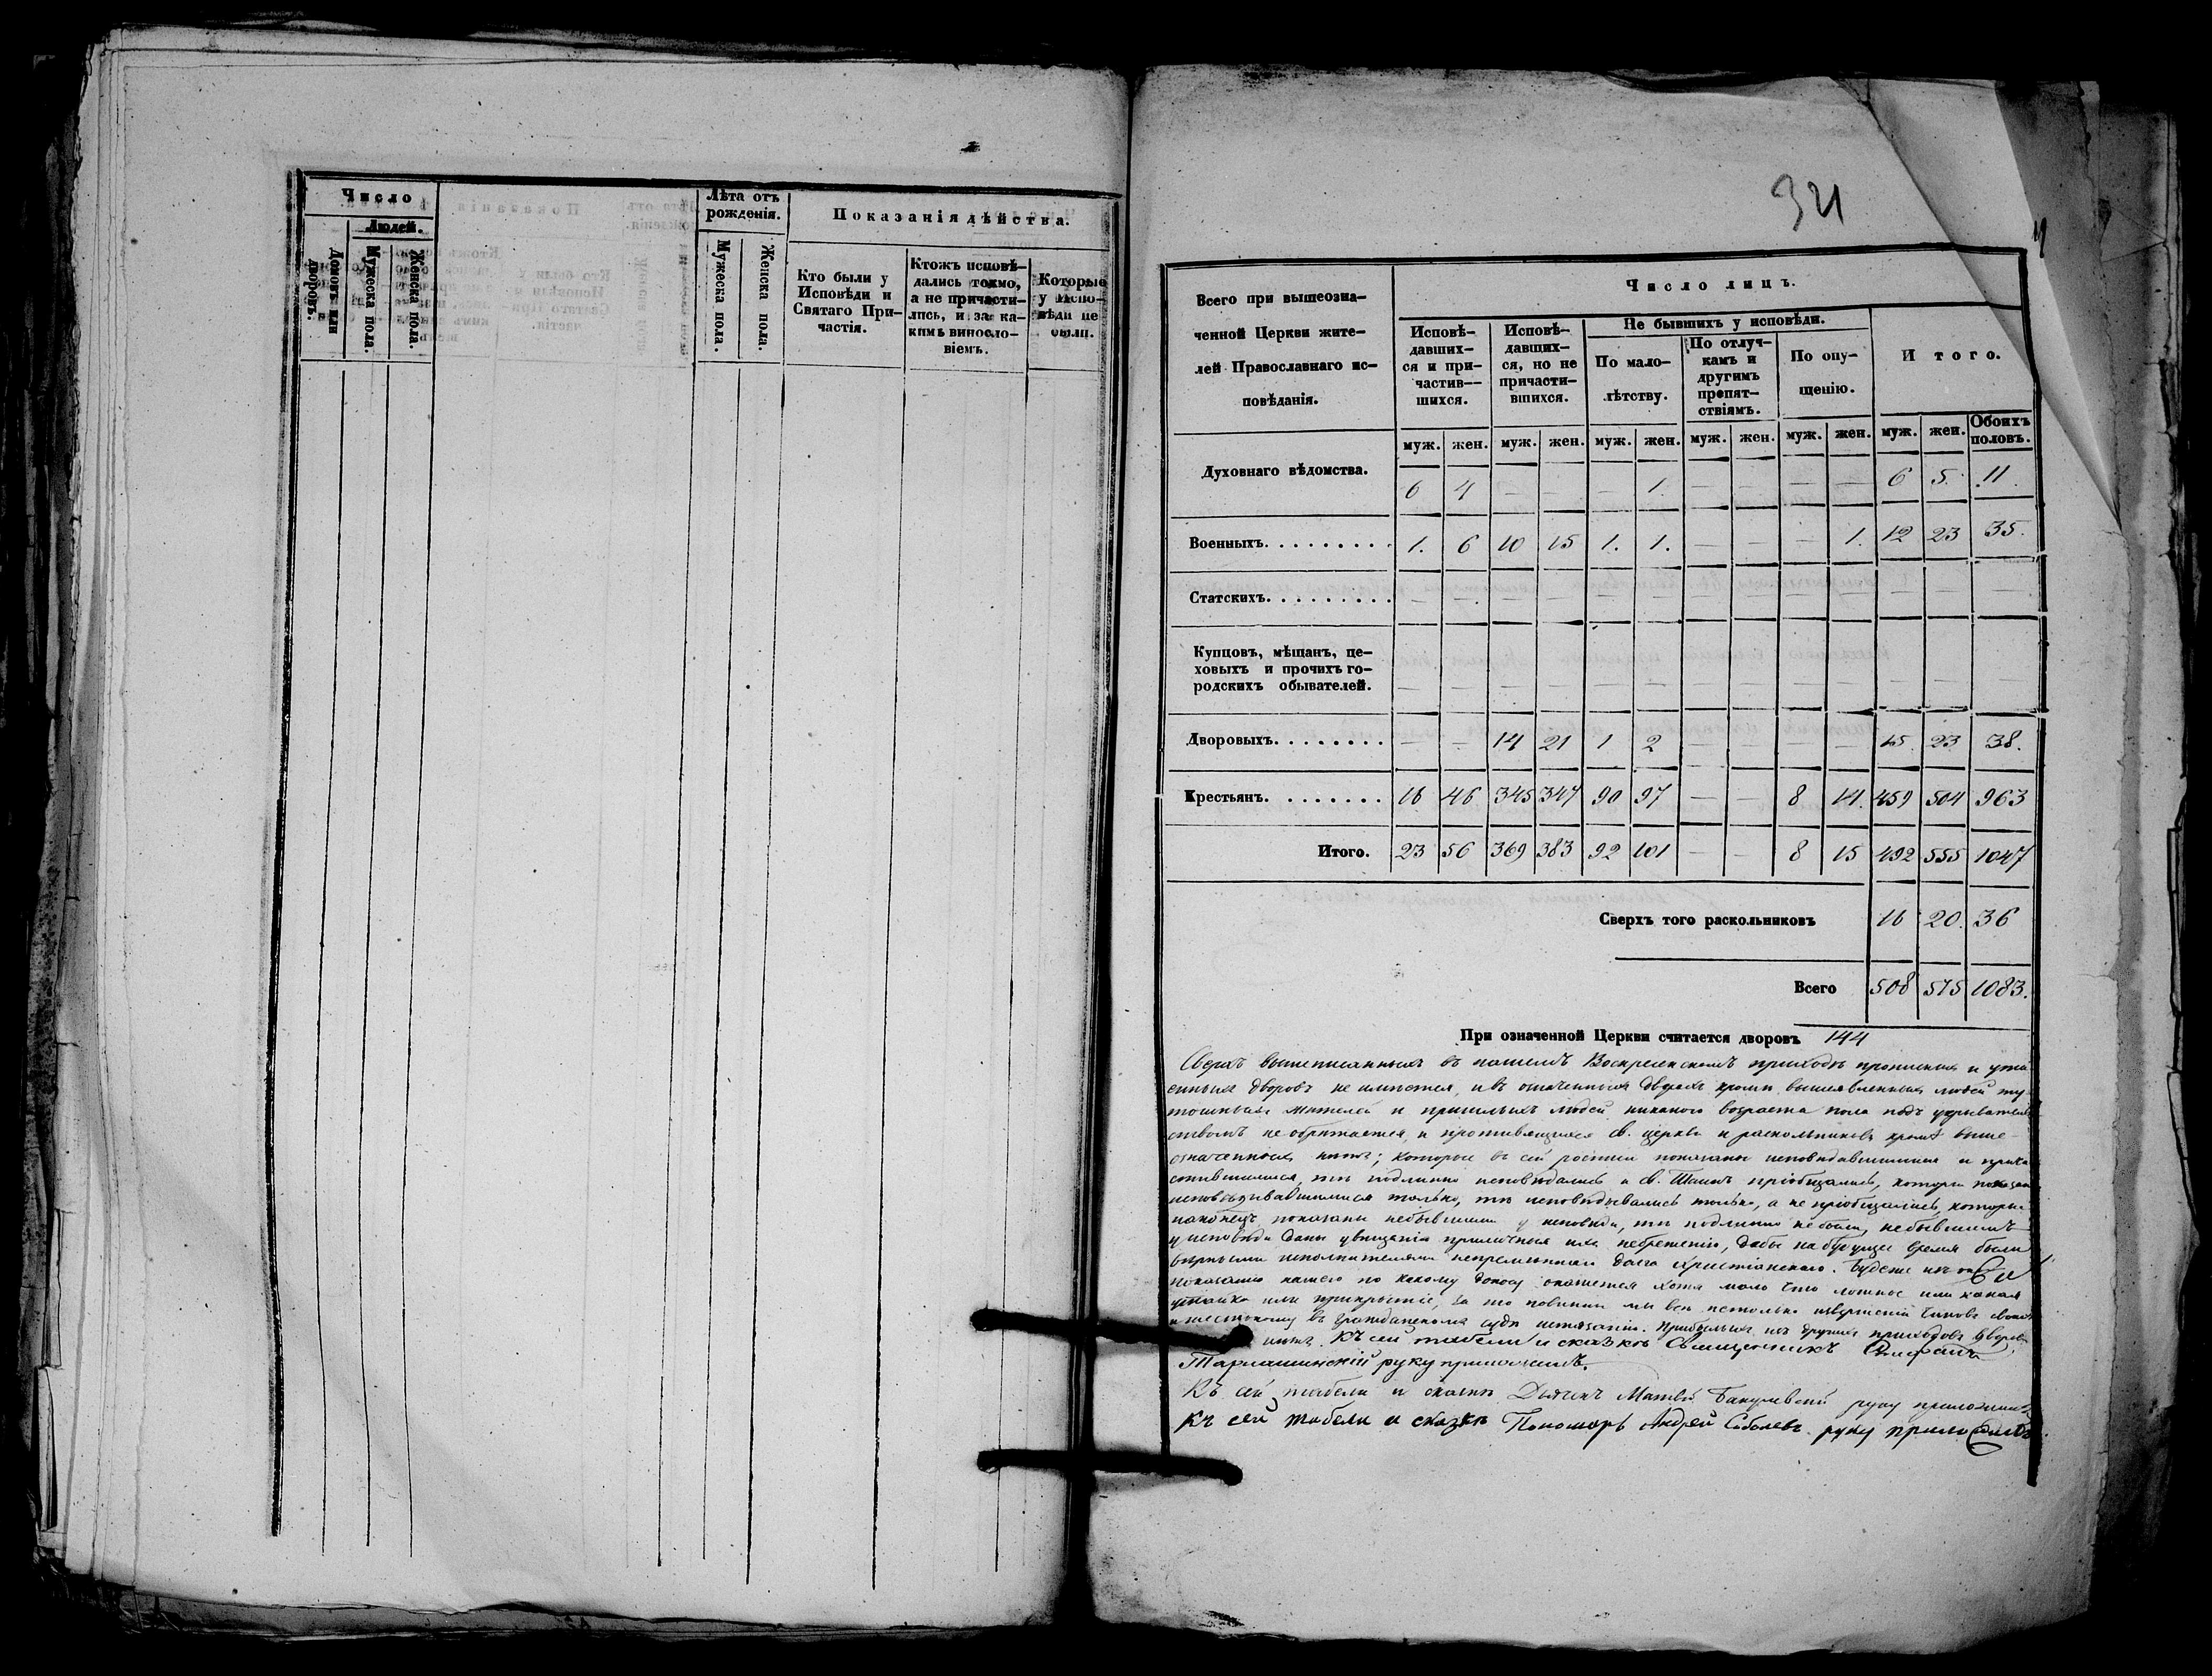 Число
Людей.
Домовъ или дворовъ.
Мужеска пола.
Женска пола.
Лѣта отъ рожденія.
Мужеска пола.
Женска пола.
Показанія дѣйства.
Кто были у Исповѣди и Святаго Причастія.
Ктожъ исповѣ-
дались токмо,
а не причасти-
лись, и за ка-
кимъ винословіемъ.
Которые у Испо-
вѣди не были.
321
Всего при вышеозна-
ченной Церкви жите-
лей Православнаго ис-
повѣданія.
Число лицъ.
Исповѣ-
давших-
ся и при-
частив-
шихся.
Исповѣ-
давших-
ся, но не
причасти-
вшихся.
Не бывшихъ у исповѣди.
По мало-
лѣтству.
По отлуч-
камъ и
другимъ
препят-
ствіямъ.
По опу-
щенію.
Итого.
муж. жен. муж. жен. муж. жен. муж. жен. муж. жен. муж. жен. Обоихъ половъ.
Духовнаго вѣдомства. 6 4 — — — 1. — — — — 6 5. 11.
Военныхъ. 1. 6 10 15 1. 1. — — — 1. 12 23 35.
Статскихъ. — — — — — — — — — — — — —
Купцовъ, мѣщанъ, це-
ховыхъ и прочихъ го-
родскихъ обывателей. — — — — — — — — — — — — —
Дворовыхъ. — — 14 21 1 2 — — — — 15. 23 38.
Крестьянъ. 16 46 345 347 90 97 — — 8 14. 459 504 963
Итого. 23 56 369 383 92 101 — — 8 15 492 555 1047
Сверхъ того раскольниковъ 16 20. 36
Всего 508 575 1083.
При означенной Церкви считается дворовъ 144
Сверхъ вышеписанныхъ въ нашемъ Воскресенскомъ приходѣ прописныхъ и ута-
енныхъ дворовъ не имѣется, и въ означенныхъ дворахъ кромѣ вышеявленныхъ людей ту
тошныхъ жителей и пришлыхъ людей никакого возраста пола подъ укрыватель
ствомъ не обрѣтается, и противящихся св. церкви и раскольниковъ кромѣ выше-
означенныхъ нѣтъ; которые въ сей росписи показаны исповѣдавшимися и прича
стившимися, тѣ подлинно исповѣдались и св. Таинъ пріобщались, которые показаны
исповѣдывавшимися только, тѣ исповѣдывались только, а не пріобщались, которые
наконецъ показаны небывшими у исповѣди, тѣ подлинно не были, небывшимъ
у исповѣди даны увѣщанія приличныя ихъ небреженію, дабы на будущее время были
вѣрными исполнителями непремѣннаго долга христіанскаго. Будеже въ
показаніи нашемъ по какому доносу окажется хотя мало что ложное или какая
утайка или прикрытіе, за то повинны мы все не только изверженію чиновъ своихъ
и жестокому въ гражданскомъ судѣ истязанію. Прибылыхъ изъ другихъ приходовъ дворовъ
нѣтъ. Къ сей табели и сказкѣ Священникъ
руку приложилъ.
Къ сей табели и сказкѣ Дьячекъ Матвѣй руку приложилъ
Къ сей табели и сказкѣ Пономарь Андрей Соболевъ руку приложилъ.